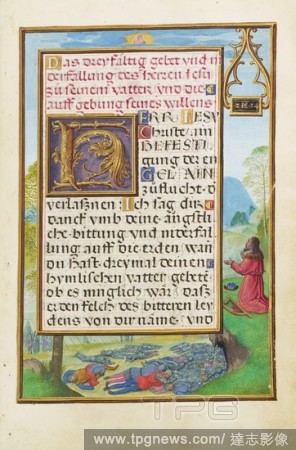 Das dreyfältig gebet vnd in
derfallung des herren iesu
zu seinem vatter vnd die
auffgebung seines willens
HERR IESV
Christe ain
BEFESTI
gung der en
GEL AIN
zuflucht d
verlassnen Ich sag dir
danck vmb deine ängstli
che bittung vnd niderfal
lung auff die erden wan
du hast dreymal deinen
hymlischen vatter gebetē
ob es müglich wär das
er den kelch des bitteren ley
dens von dir näme vnd
TPG
www.tpgnews.com／達志影像